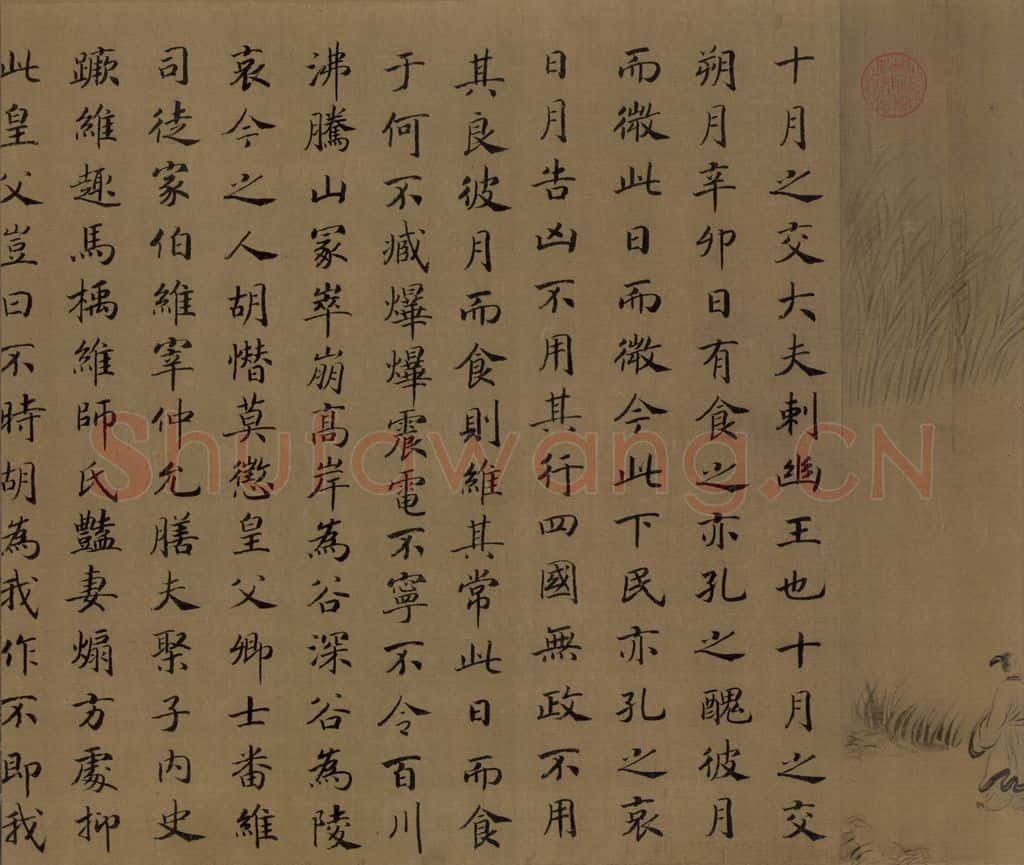 十月之交大夫刺幽王也十月之交
朔月辛卯日有食之亦孔之醜彼月
而微此日而微今此下民亦孔之哀
日月告凶不用其行四國無政不用
其良彼月而食則維其常此日而食
于何不臧爗爗震電不寧不令百川
沸騰山冢崒崩高岸為谷深谷為陵
哀今之人胡憯莫懲皇父卿士番維
司徒家伯維宰仲允膳夫棸子內史
蹶維趣馬楀維師氏豔妻煽方處抑
此皇父豈曰不時胡為我作不即我
Shutowang.CN